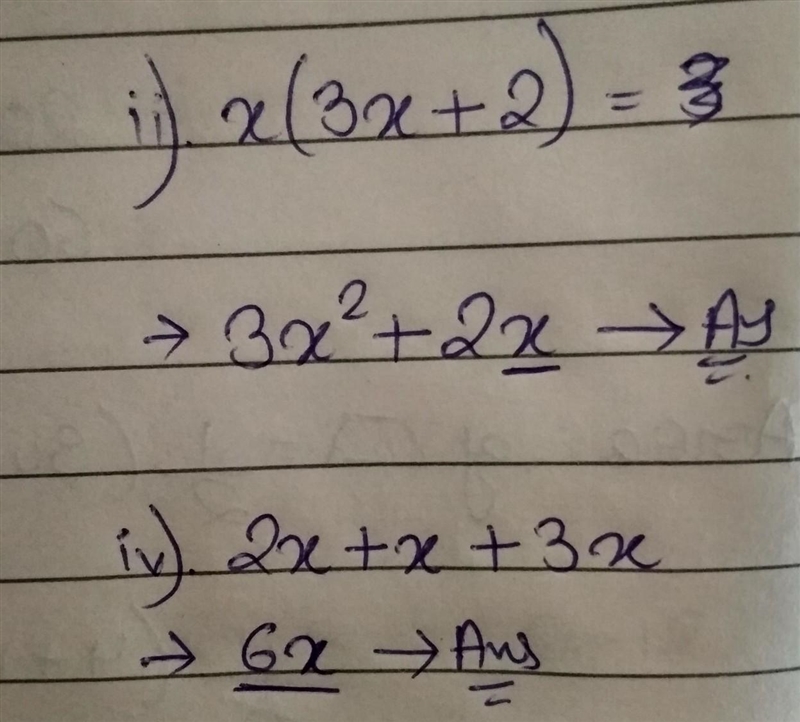 ii). x(3x+2) = 3
→ 3x²+2x → Ans
iv). 2x+x+3x
→ 6x → Ans